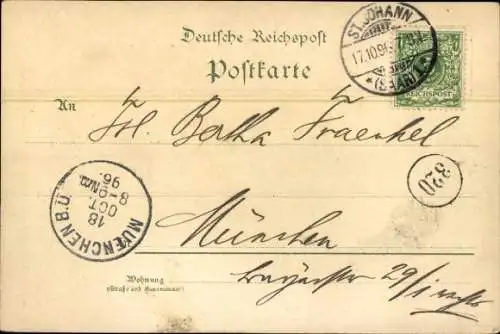 Deutsche Reichspost
Postkarte
ST. JOHANN
17.10.96
* (SAAR) *
REICHSPOST
An
Frl. Bertha Fraenkel
320
MUENCHEN B.Ü.
18
OCT.
8-9 Nm.
96.
München
29/I
Wohnung
(Straße und Hausnummer)